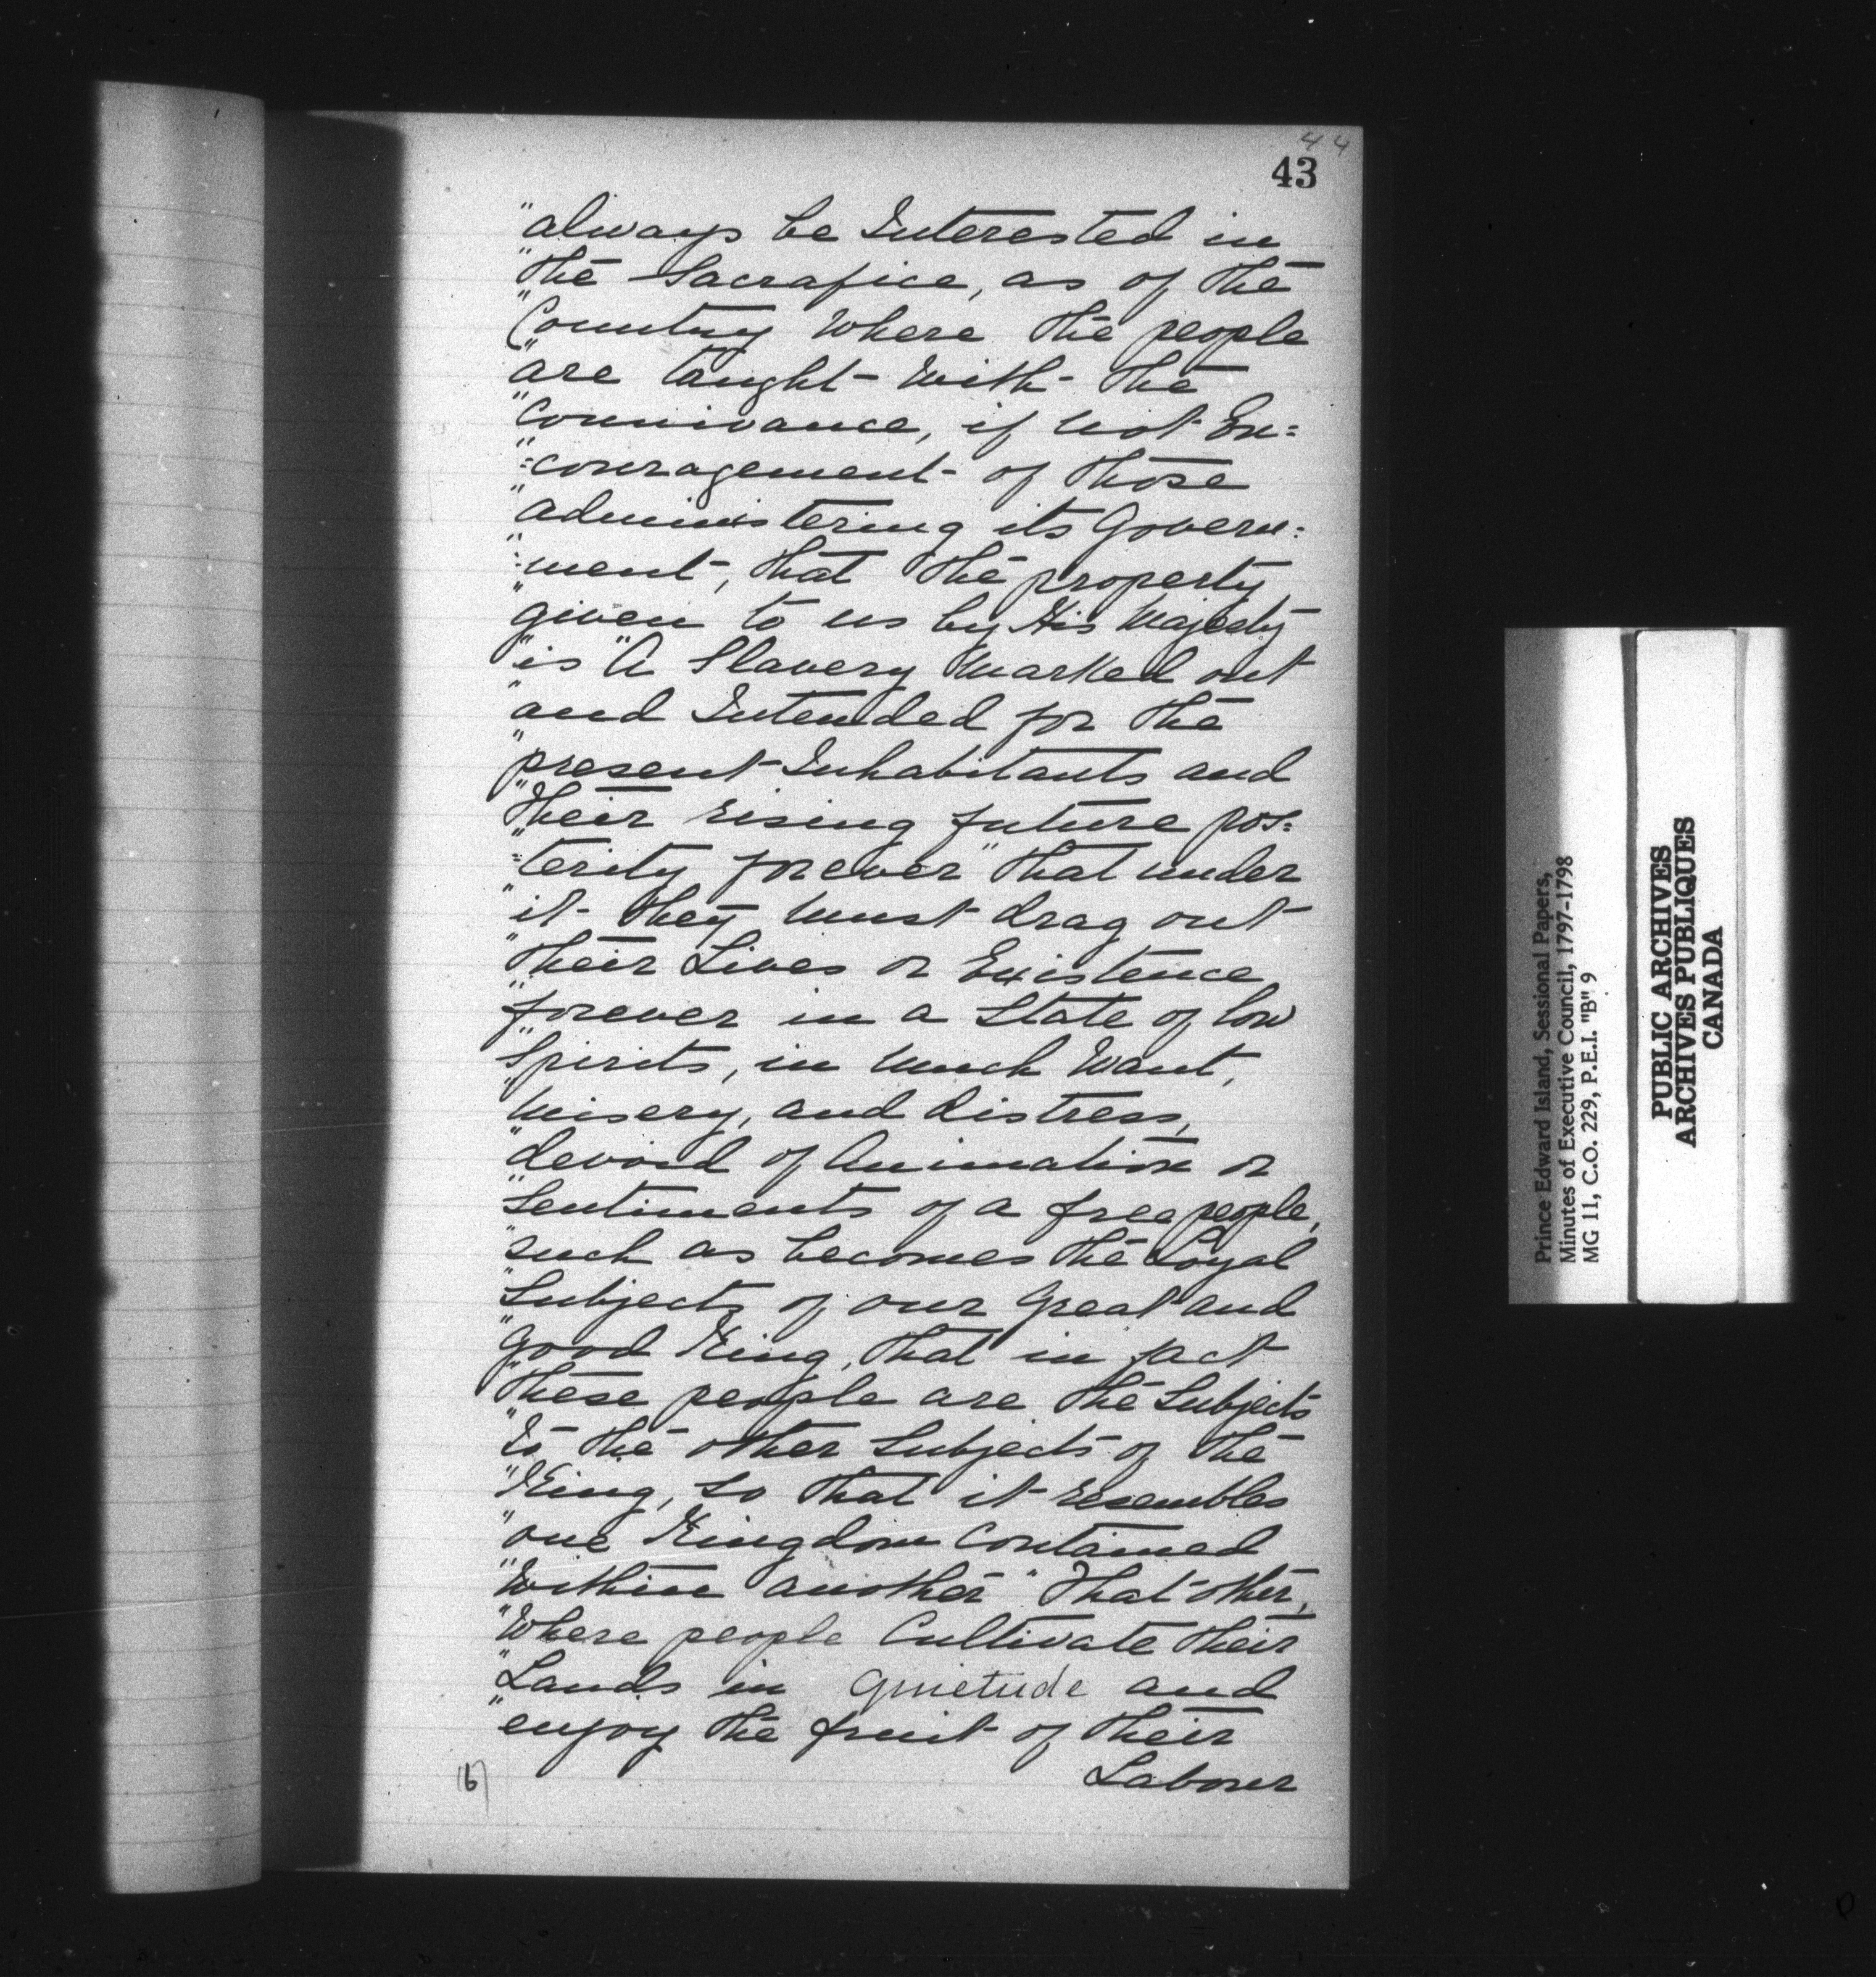 44
43
"always be Interested in
"the Sacrafice, as of the
"Country where the people
"are taught with the
"Connivance, if not En=
"=couragement of those
"administering its Govern=
"=ment, that the property
"given to us by His Majesty
"is "A Slavery marked out
"and Intended for the
"present Inhabitants and
"their rising future pos=
"=terity forever" that under
"it they must drag out
"their Lives or Existence
"forever in a State of low
"Spirits, in much want,
"misery, and distress,
"devoid of Animation or
"Sentiments of a free people,
"such as becomes the Loyal
"Subjects of our Great and
"Good King, that in fact
"these people are the Subjects
"to the other Subjects of the
"King, so that it resembles
"one Kingdom Contained
"within another" That other,
"Where people Cultivate their
"Lands in Quietude and
"enjoy the fruit of their
Labour
(6)
Prince Edward Island, Sessional Papers,
Minutes of Executive Council, 1797-1798
MG 11, C.O. 229, P.E.I. "B" 9
PUBLIC ARCHIVES
ARCHIVES PUBLIQUES
CANADA